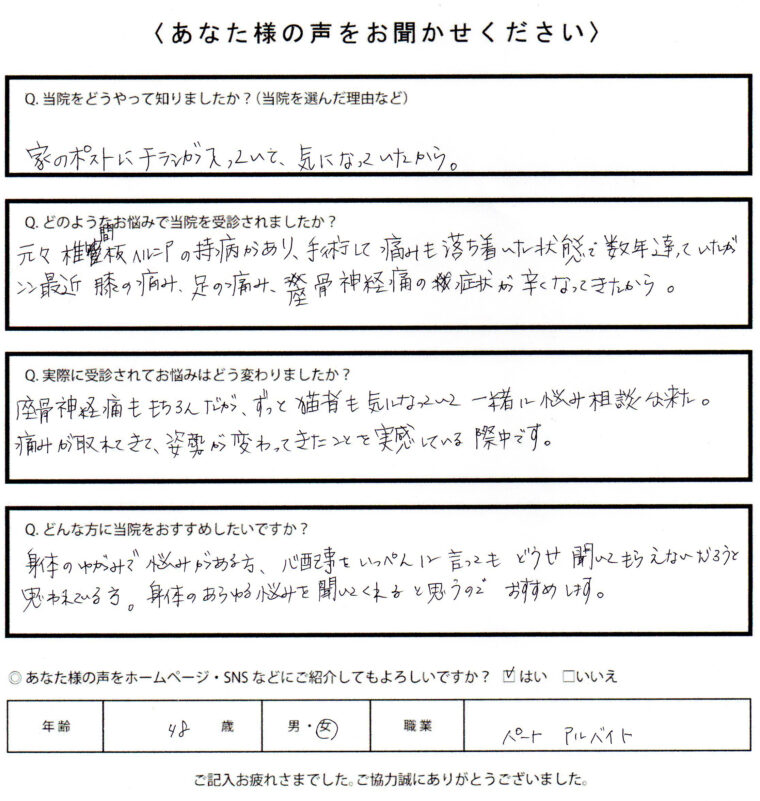 〈あなた様の声をお聞かせください〉
Q. 当院をどうやって知りましたか？（当院を選んだ理由など）
家のポストにチラシが入っていて、気になっていたから。
Q. どのようなお悩みで当院を受診されましたか？
元々 椎間板ヘルニアの持病があり、手術して痛みも落ち着いた状態で数年達っていたが
最近 膝の痛み、足の痛み、座骨神経痛の症状が辛くなってきたから。
Q. 実際に受診されてお悩みはどう変わりましたか？
座骨神経痛ももちろんだが、ずっと猫背も気になっていて 一緒に悩み相談出来た。
痛みが取れてきて、姿勢が変わってきたことを実感している際中です。
Q. どんな方に当院をおすすめしたいですか？
身体のゆがみで悩みがある方、心配事をいっぺんに言っても どうせ聞いてもらえないだろうと
思われている方。身体のあらゆる悩みを聞いてくれると思うので おすすめします。
◎ あなた様の声をホームページ・SNS などにご紹介してもよろしいですか？ ☑はい □いいえ
年齢 48 歳 男・女 職業 パート アルバイト
ご記入お疲れさまでした。ご協力誠にありがとうございました。